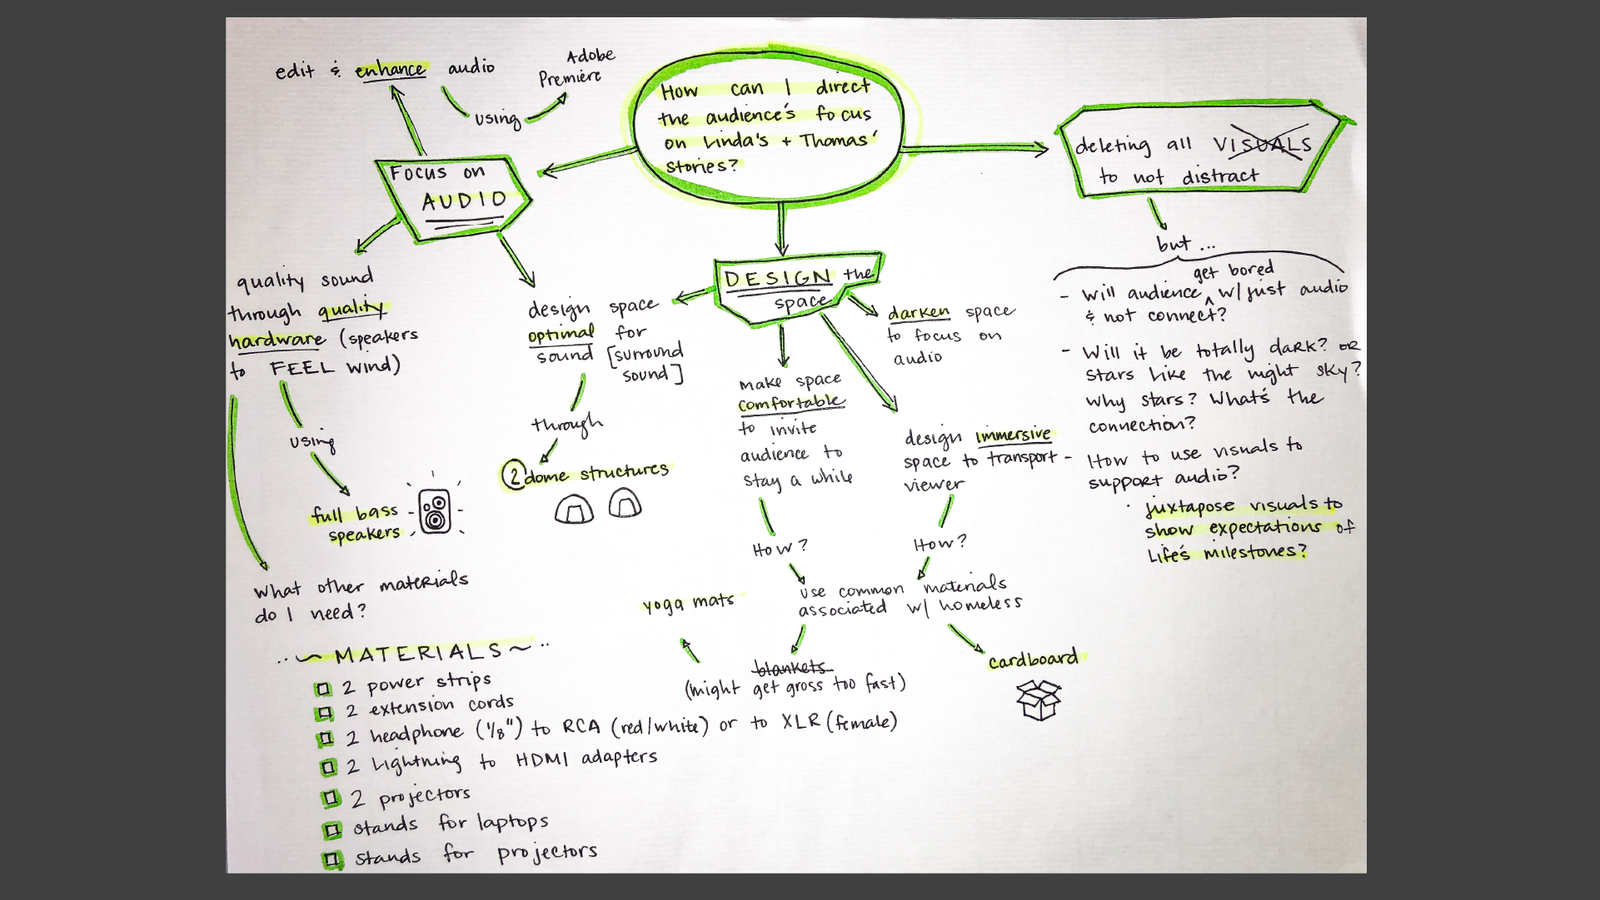 How can I direct
the audience's focus
on Linda's + Thomas'
stories?
Focus on
AUDIO
edit & enhance audio
using
Adobe
Premiere
quality sound
through quality
hardware (speakers
to FEEL wind)
using
full bass
speakers
What other materials
do I need?
design space
optimal for
sound [surround
sound]
through
2 dome structures
DESIGN the
space
darken space
to focus on
audio
make space
comfortable
to invite
audience to
stay a while
How?
design immersive
space to transport
viewer
How?
use common materials
associated w/ homeless
blankets
(might get gross too fast)
yoga mats
cardboard
deleting all VISUALS
to not distract
but ...
get bored
- Will audience ^ w/ just audio
& not connect?
- Will it be totally dark? or
stars like the night sky?
why stars? What's the
connection?
- How to use visuals to
support audio?
· juxtapose visuals to
show expectations of
Life's milestones?
~ MATERIALS ~
2 power strips
2 extension cords
2 headphone (1/8") to RCA (red/white) or to XLR (female)
2 Lightning to HDMI adapters
2 projectors
stands for laptops
stands for projectors